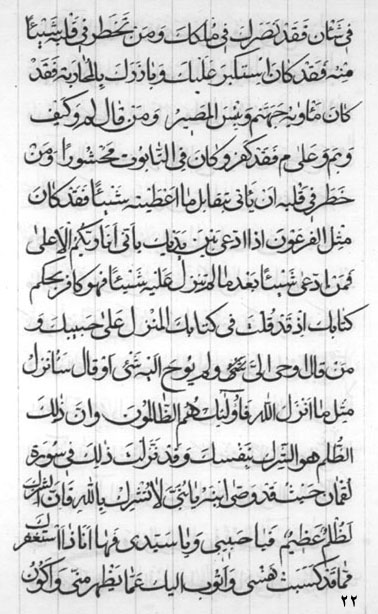 في شان فقد نصرك في ملكك ومن يخطر في قلبه شيئا
منه فقد كان استكبر عليك وبارزك بالمحاربة فقد
كان ماويه جهنم وبئس المصير ومن قال لم وكيف
وبم وعلى م فقد كفر وكان في التابوت محشورا ومن
خطر في قلبه ان ياتي بمقابل ما اعطيته شيئا فقد كان
مثل الفرعون اذا ادعى بين يديك باني انا ربكم الاعلى
فمن ادعى شيئا بعد ما لم تنزل عليه شيئا فهو كافر بحكم
كتابك اذ قد قلت في كتابك المنزل على حبيبك و
من قال اوحي الي شيء ولم يوح اليه شيء او قال سانزل
مثل ما انزل الله فاولئك هم الظالمون وان ذلك
الظلم هو الشرك بنفسك وقد نزلت ذلك في سورة
لقمان حيث قد وصى ابنه يا بني لا تشرك بالله فان الشرك
لظلم عظيم فيا حبيبي ويا سيدي فها انا ذا استغفرك
مما قد كسبت نفسي واتوب اليك عما يظهر مني واكون
٢٢